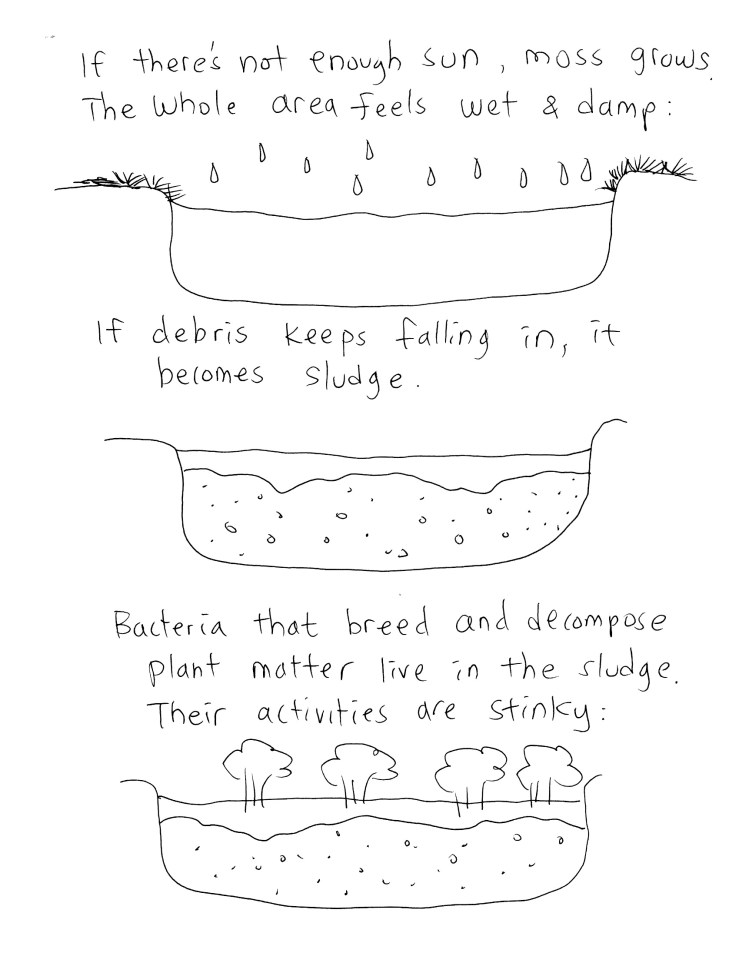 If there's not enough sun, moss grows.
The whole area feels wet & damp:
If debris keeps falling in, it
becomes sludge.
Bacteria that breed and decompose
plant matter live in the sludge.
Their activities are stinky: